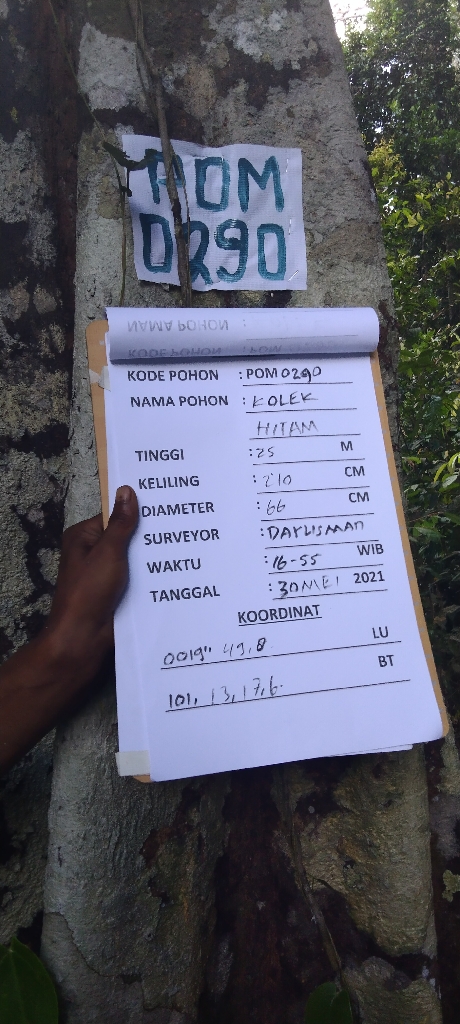 POM
0290
NAMA POHON :
KODE POHON : POM
KODE POHON : POM 0290
NAMA POHON : KOLEK
HITAM
TINGGI : 25 M
KELILING : 210 CM
DIAMETER : 66 CM
SURVEYOR : DARUSMAN
WAKTU : 16-55 WIB
TANGGAL : 30 MEI 2021
KOORDINAT
0019" 49,8 LU
101, 13, 17,6 BT